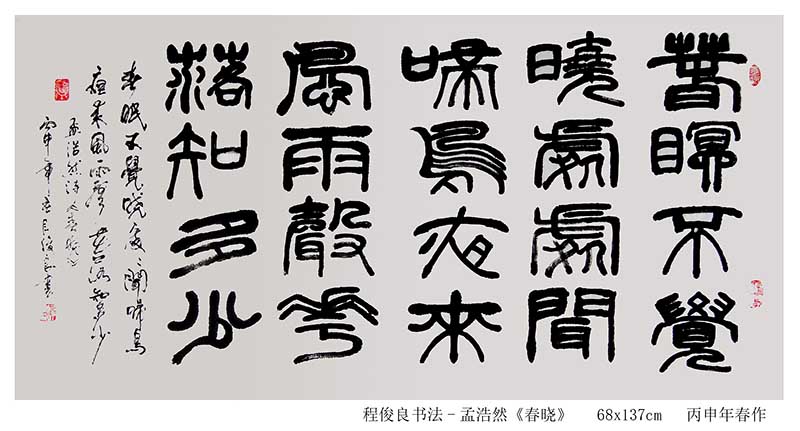 春眠不覺
曉處處聞
啼鳥夜來
風雨聲花
落知多少
春眠不覺曉處〻聞啼鳥
夜來風雨聲花落知多少
孟浩然诗春晓
丙申年春月俊良書
程俊良书法-孟浩然《春晓》 68x137cm 丙申年春作